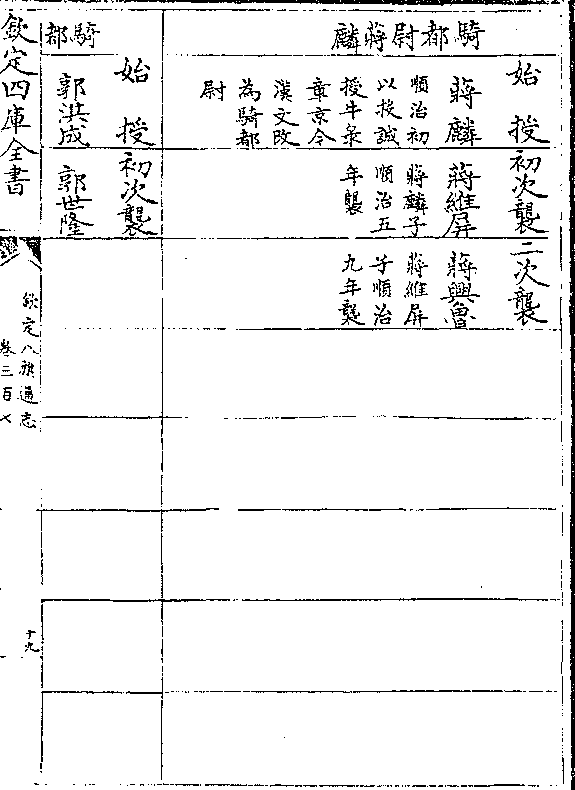 騎都尉蔣麟
始授
蔣麟
順治初
以投誠
授牛彔
章京今
漢文改
為騎都
尉
初次襲
蔣維屏
蔣麟子
順治五
年襲
二次襲
蔣興魯
蔣維屏
子順治
九年襲
騎都
始授
郭洪成
初次襲
郭世隆
欽定四庫全書
欽定八旗通志
卷三百七
十九